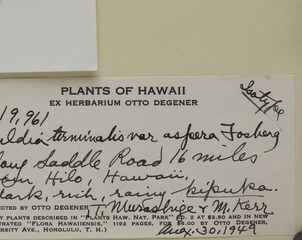 PLANTS OF HAWAII
EX HERBARIUM OTTO DEGENER
Isotype
19,961
uldia terminalis var aspera Fosberg
long Saddle Road 16 miles
from Hilo, Hawaii,
dark, rich, rainy kipuka.
ECTED BY OTTO DEGENER, T. Murashige & M. Kerr
Y PLANTS DESCRIBED IN "PLANTS HAW. NAT. PARK" ED. 2 AT $2.50 AND IN NEW
STRATED "FLORA HAWAIIENSIS," 1192 PAGES, FOR $6.00 BY OTTO DEGENER,
ERSITY AVE., HONOLULU, T. H.) Aug. 30, 1949